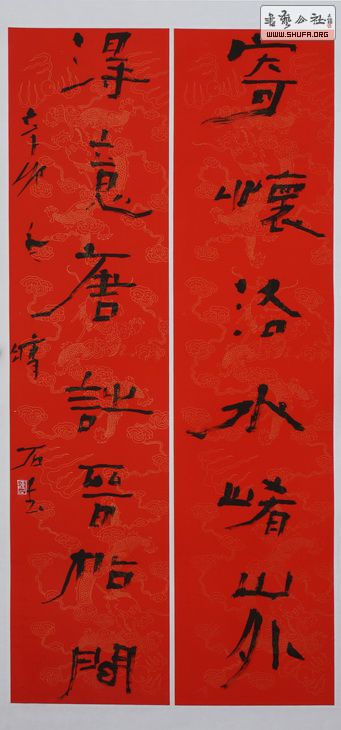 書藝公社
WWW.SHUFA.ORG
寄懷洛水崤山外
得意唐詩晉帖間
辛卯